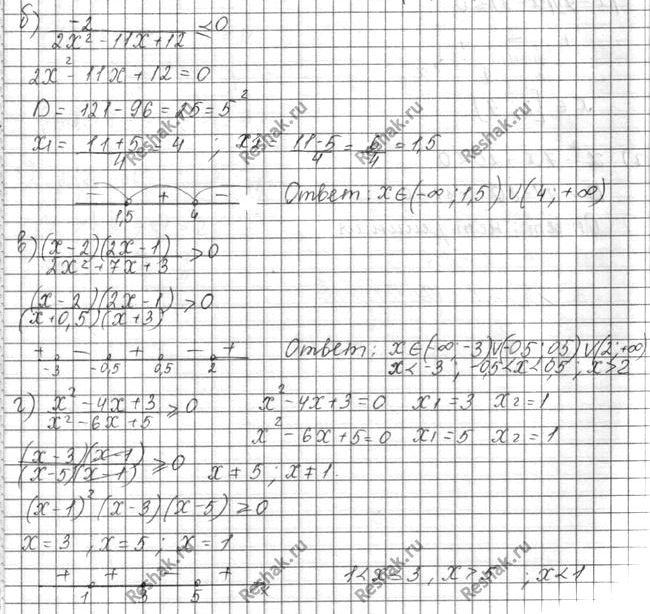 б) -2 / (2x² - 11x + 12) < 0
2x² - 11x + 12 = 0
D = 121 - 96 = 25 = 5²
x1 = (11 + 5)/4 = 4 ; x2 = (11 - 5)/4 = 6/4 = 1,5
- + -
1,5 4
Ответ: x ∈ (-∞ ; 1,5) ∪ (4 ; +∞)
в) (x - 2)(2x - 1) / (2x² + 7x + 3) > 0
(x - 2)(2x - 1) / (x + 0,5)(x + 3) > 0
+ - + - +
-3 -0,5 0,5 2
Ответ: x ∈ (-∞ ; -3) ∪ (-0,5 ; 0,5) ∪ (2 ; +∞)
x < -3 ; -0,5 < x < 0,5 ; x > 2
г) (x² - 4x + 3) / (x² - 6x + 5) ≥ 0
x² - 4x + 3 = 0 x1 = 3 x2 = 1
x² - 6x + 5 = 0 x1 = 5 x2 = 1
(x - 3)(x - 1) / (x - 5)(x - 1) ≥ 0
x ≠ 5 ; x ≠ 1.
(x - 1)² (x - 3)(x - 5) ≥ 0
x = 3 , x = 5 ; x = 1
+ + - +
1 3 5 x
1 < x ≤ 3 , x > 5 ; x < 1
Reshak.ru
Reshak.ru
Reshak.ru
Reshak.ru
Reshak.ru
Reshak.ru
Reshak.ru
Reshak.ru
Reshak.ru